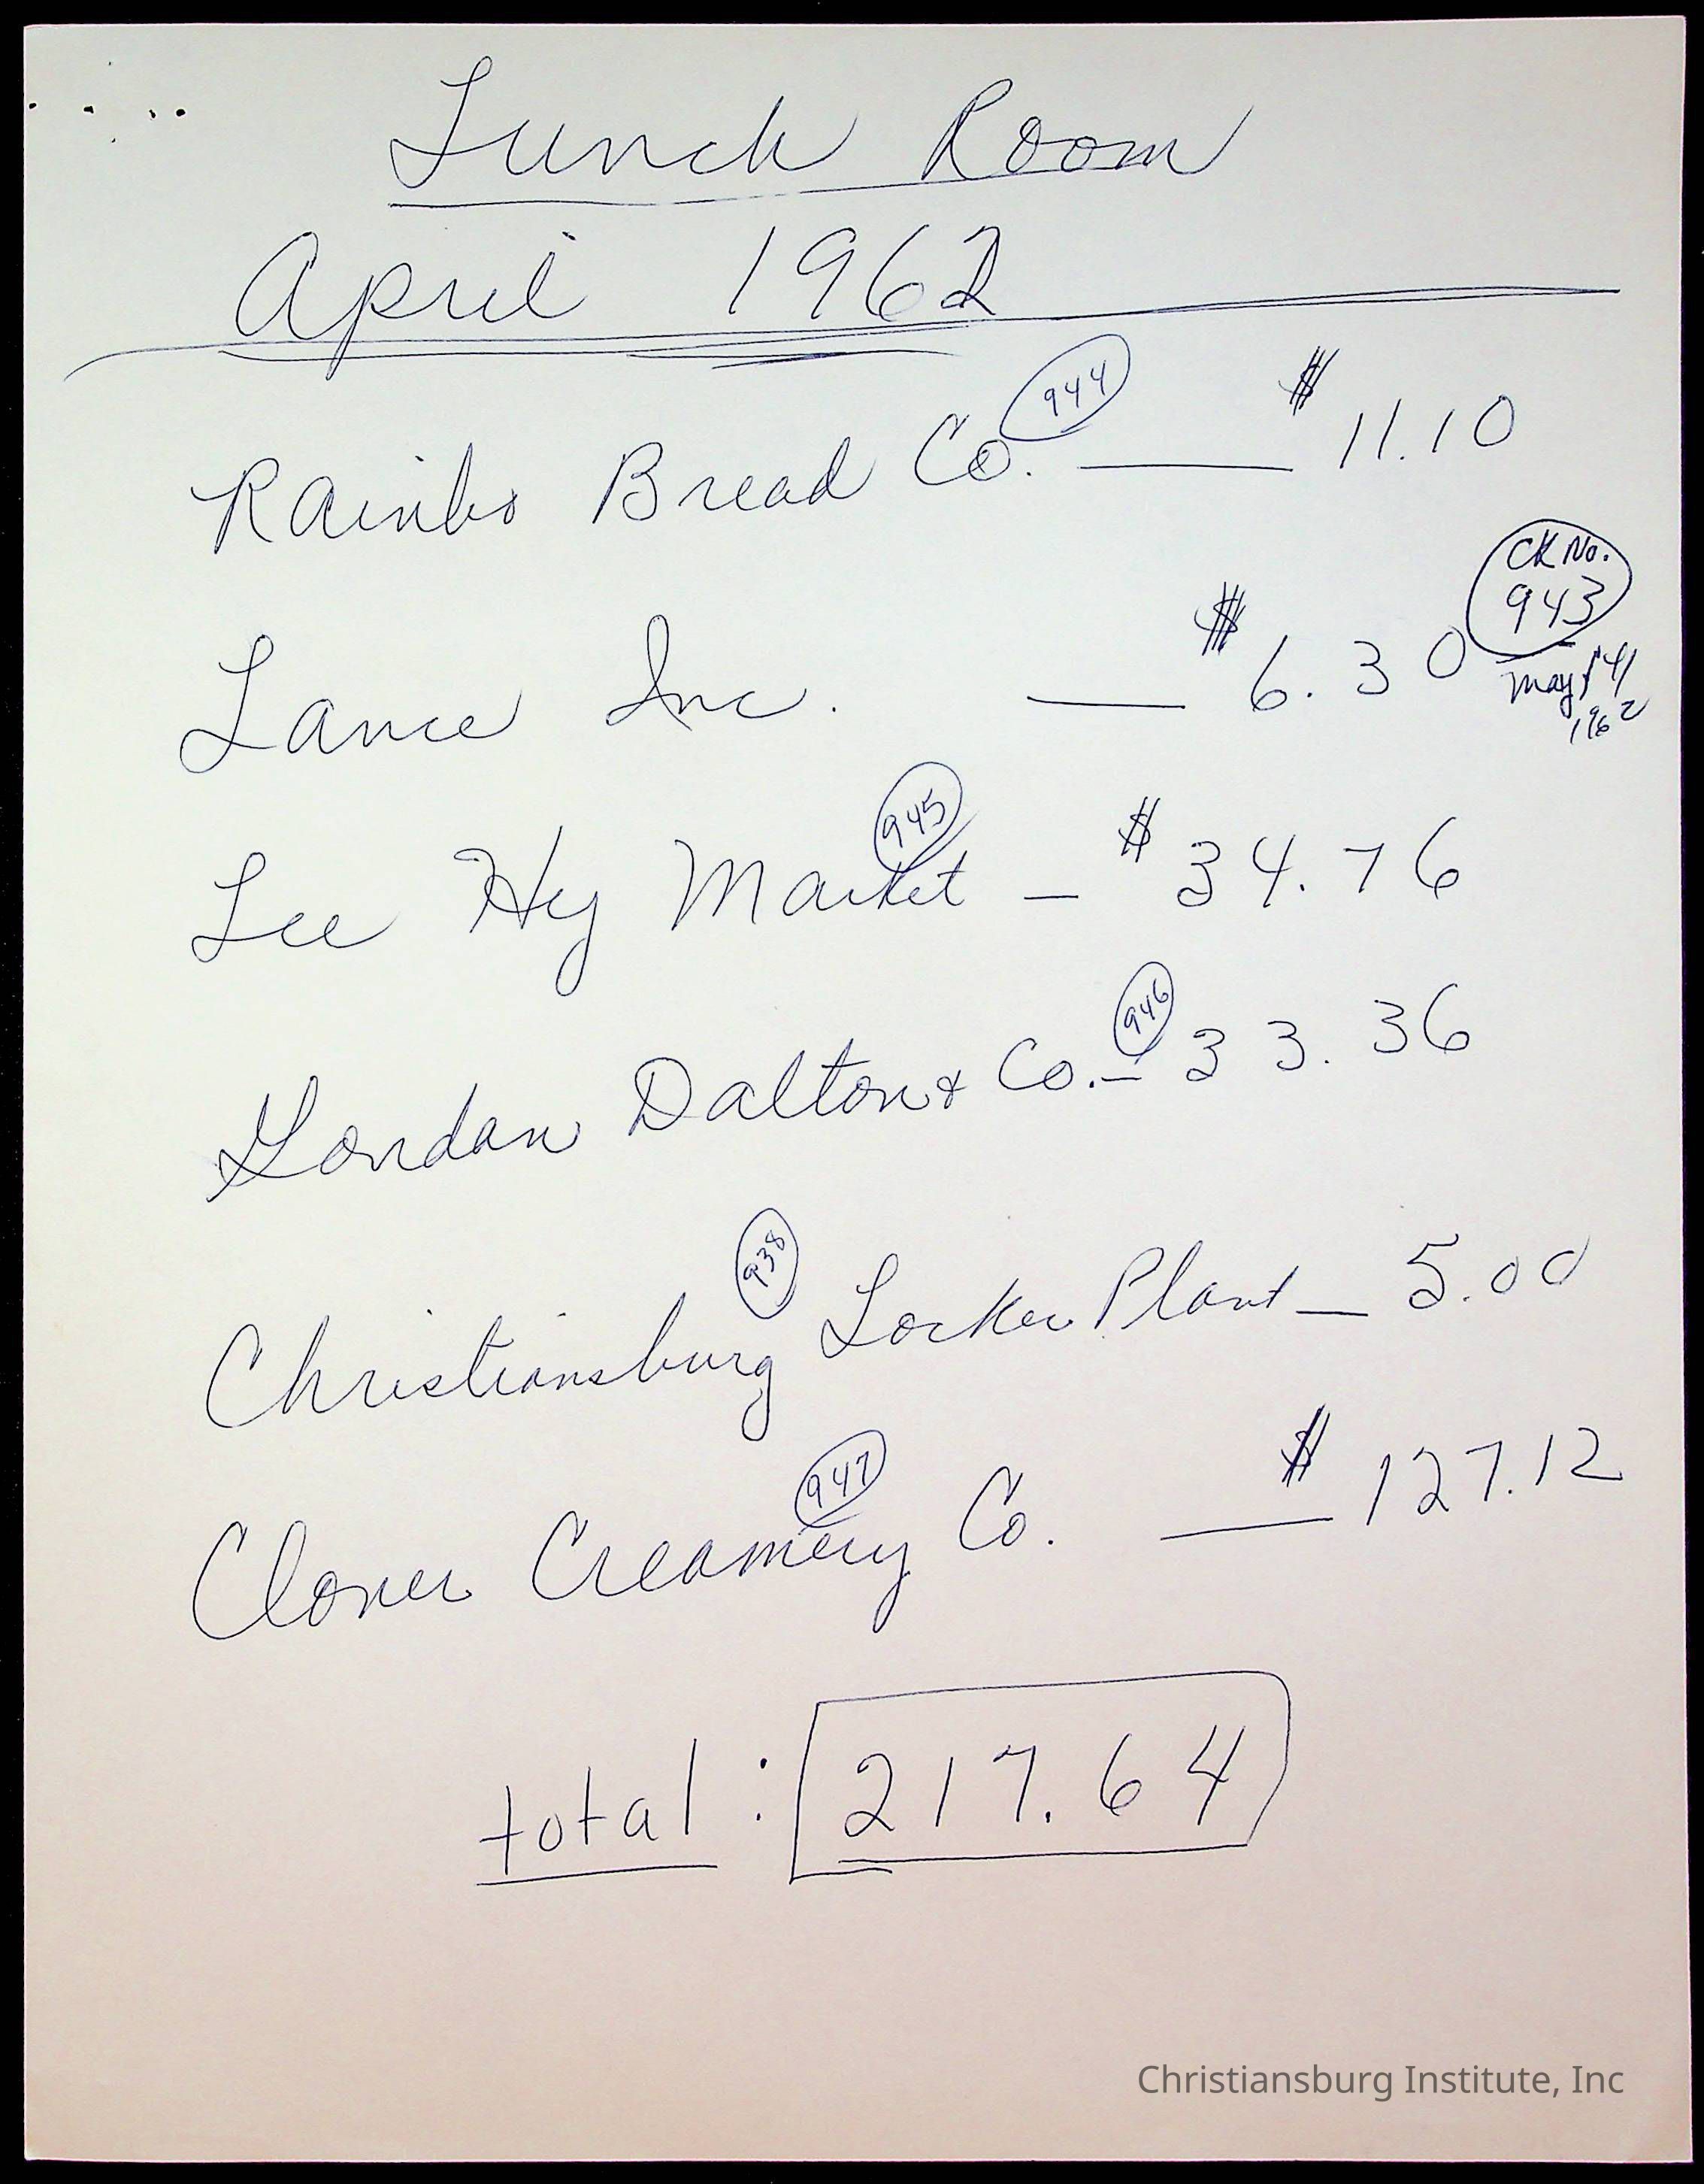 Lunch Room
April 1962
Rainbo Bread Co. 944 — $ 11.10
Lance Inc. — $ 6.30 CK No. 943
May 14
1962
Lee Hy Market 945 — $ 34.76
Gordan Dalton & Co. 946 — 33.36
Christiansburg 938 Locker Plant — 5.00
Clover Creamery Co. 947 — $ 127.12
total: 217.64
Christiansburg Institute, Inc